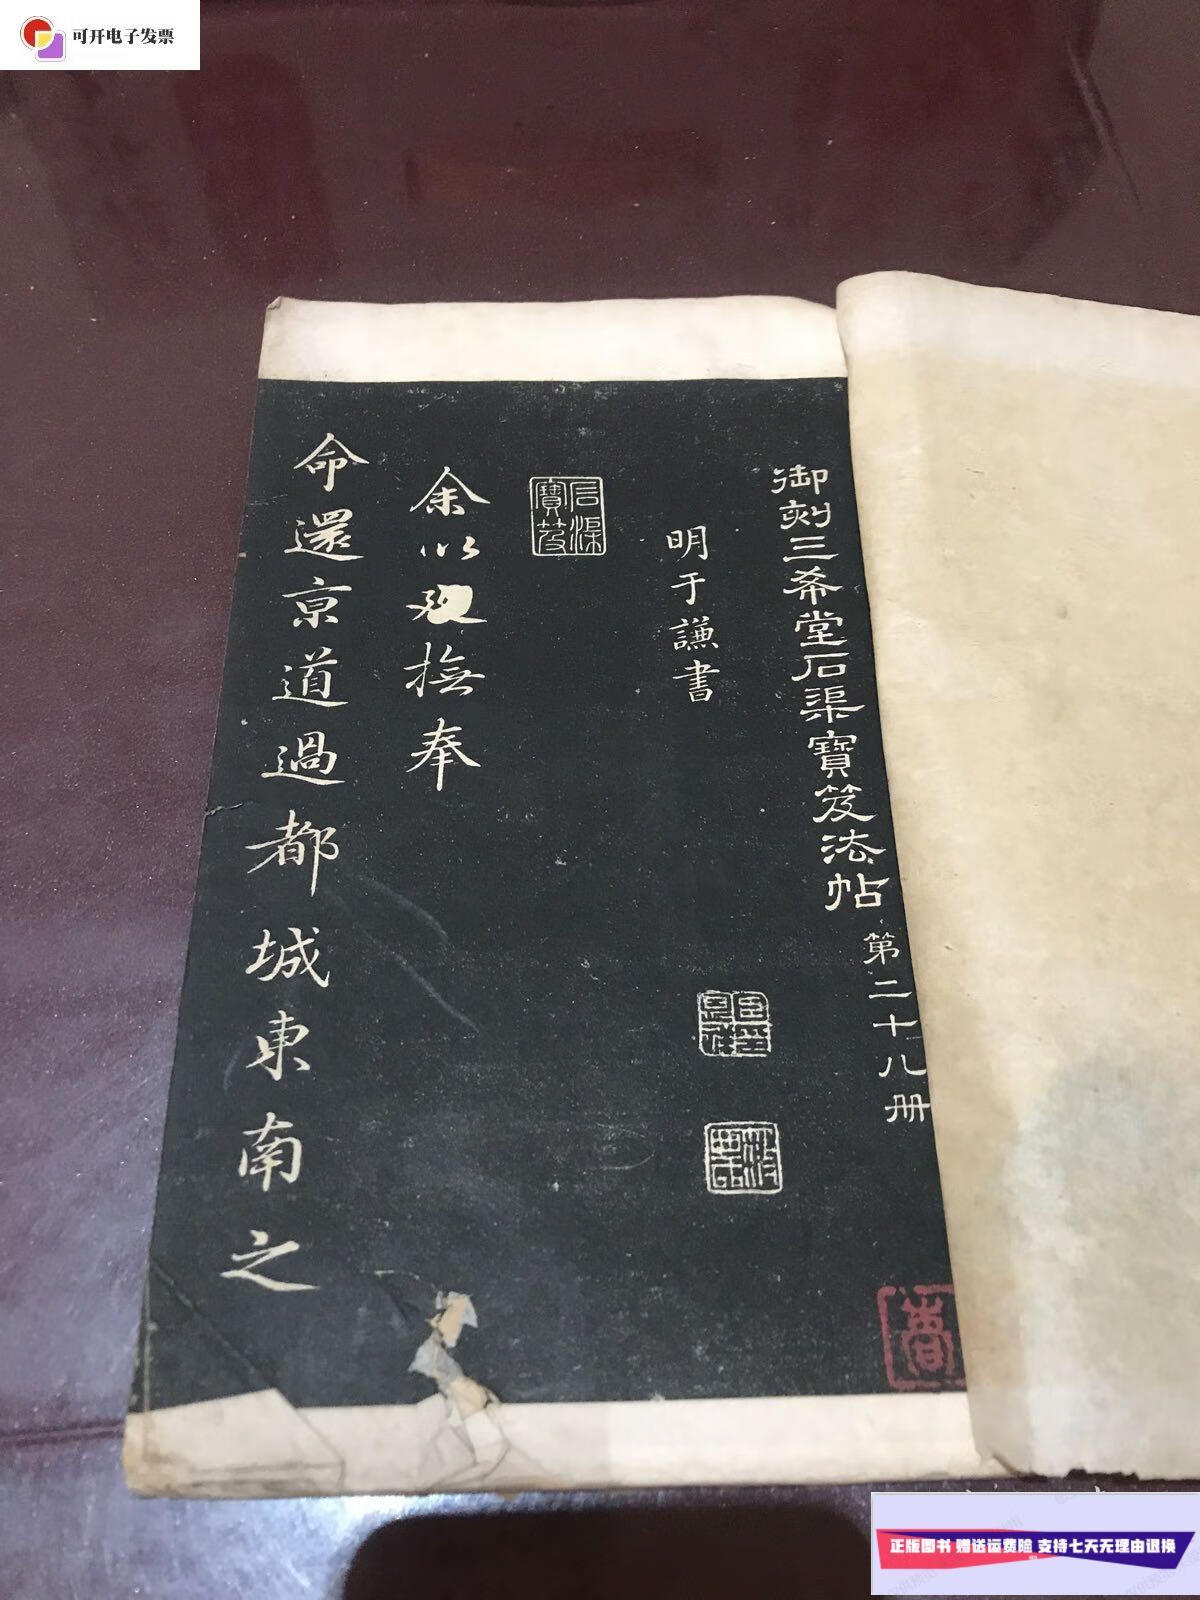 可开电子发票
御刻三希堂石渠寶笈法帖 第二十八册
明于謙書
石渠寶笈
余以 撫奉
命還京道過都城東南之
正版图书 赠送运费险 支持七天无理由退换